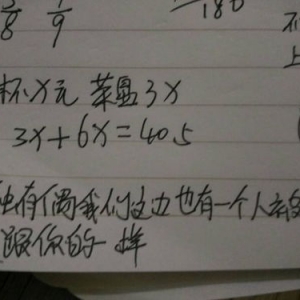 5/8 1/9 180 不
杯x元 菜盘3x 上
3x+6x=40.5
独有偶我们这边也有一个人
跟你的一样